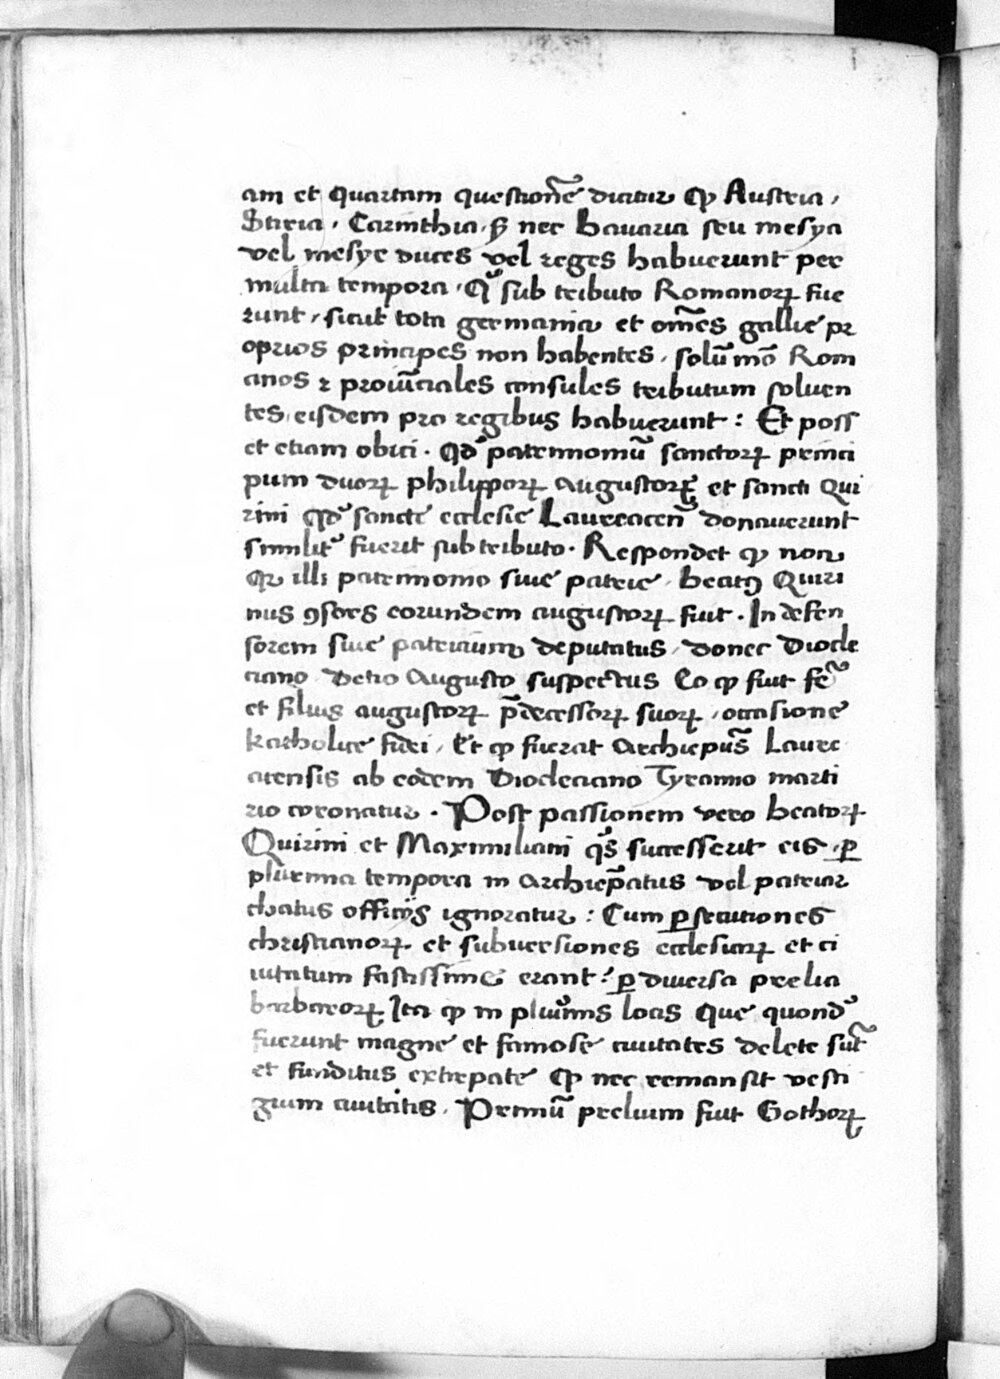 am et quartam questionē dicitur qͥ Austria,
Stiria, Carinthia, sꝫ nec Bauaria seu mesya
vel mesye duces vel reges habuerunt per
multa tempora, Qꝫ sub tributo Romanoꝝ fue
runt, sicut tota germania et om̄es gallie pr
oprios principes non habentes, solū mō Rom
anos ⁊ prouīciales consules tributum soluen
tes, eisdem pro regibus habuerunt : Et poss
et etiam obici . Qd᷒ patrimoniū sanctoꝝ princi
pum duoꝝ philippoꝝ augustoꝝ et sancti Qui
rini qd᷒ sancte ecclesie Laureaceñ donauerunt
similit᷒ fuerit sub tributo . Respondet ꝙ non
Qꝛ illi patrimonio siue patrie, beatꝰ Quiri
nus ꝯsors eorundem augustoꝝ fuit . In defen
sorem siue patricium deputatus, donec Diocle
ciano Augusto suspectus Eo ꝙ fuit
et filius augustoꝝ p̄decessoꝝ suoꝝ, occasione
katholice fidei, Et ꝙ fuerat Archiepūs Laure
acensis ab eodem Diocleciano Tyranno marti
rio coronatur . Post passionem vero beatoꝝ
Quirini et Maximiliani qͥs successerit eis, ꝑ
plurima tempora in Archiep̄atus vel patriar
chatus officijs ignoratur : Cum ꝑsecutiones
christianoꝝ et subuersiones ecclesiaꝝ et ci
uitatum erant : ꝑ diuersa prelia
barbaroꝝ Ita ꝙ in plurimis locis Que quond᷒
fuerunt magne et famose ciuitates delete sūt
et funditus extirpate Qꝙ nec remansit vesti
gium ciuitatis . Primū prelium fuit Gothoꝝ